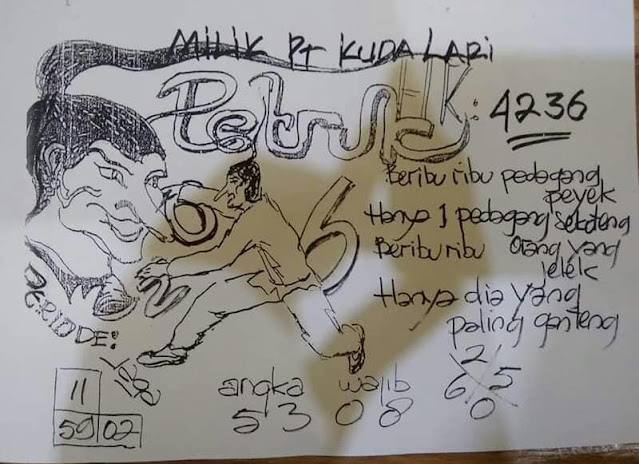 MILIK PT KUDA LARI
Petruk
HK: 4236
Beribu ribu pedagang
peyek
Hanya 1 pedagang sekoteng
Beribu ribu orang yang
jelek
Hanya dia yang
paling ganteng
6
angka wajib
5 3 0 8
2
6 5
0
11
59 02